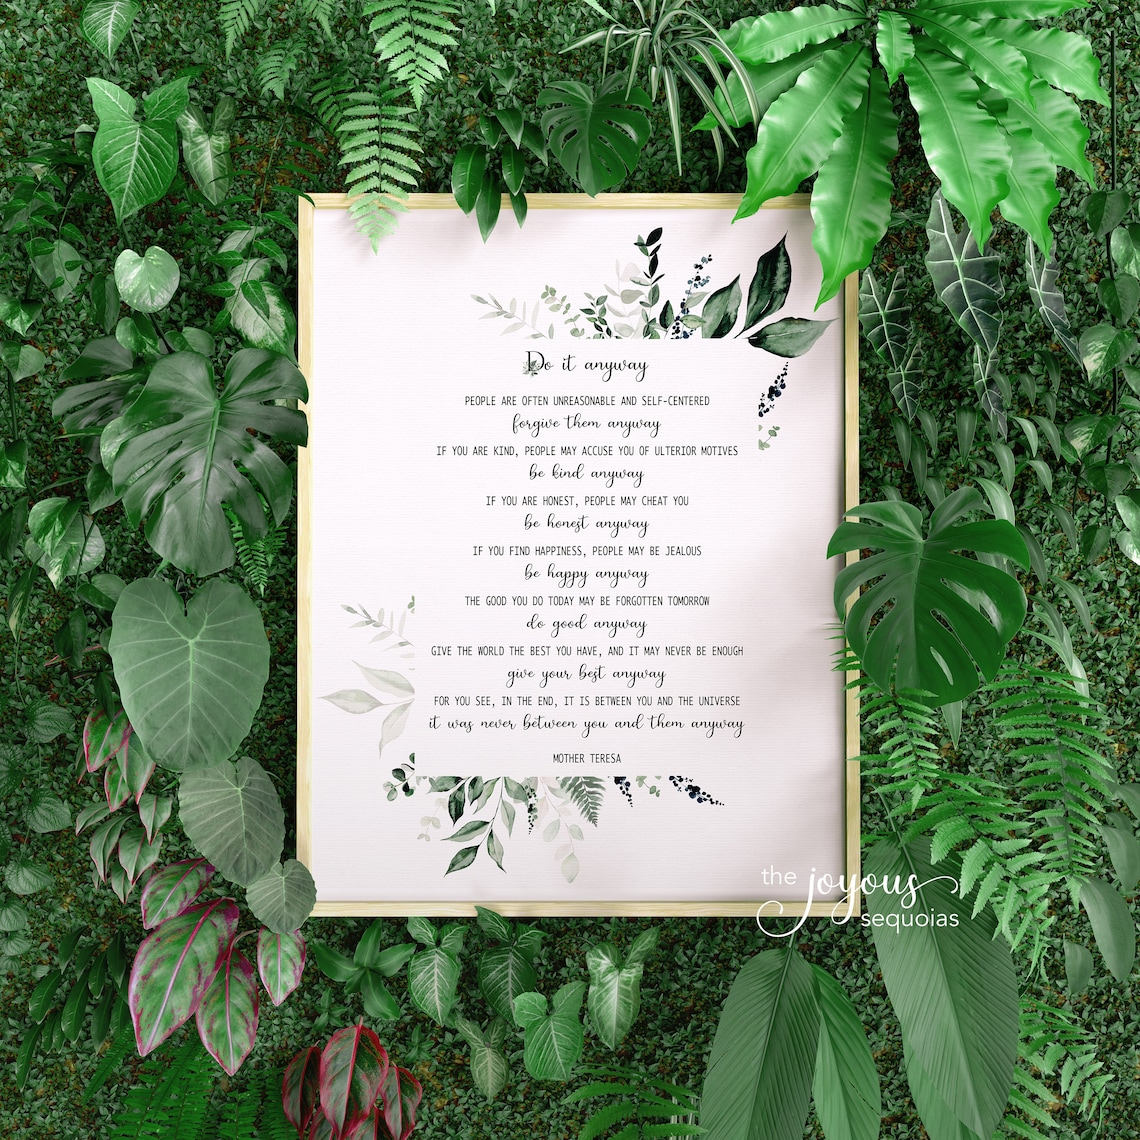 Do it anyway
PEOPLE ARE OFTEN UNREASONABLE AND SELF-CENTERED
forgive them anyway
IF YOU ARE KIND, PEOPLE MAY ACCUSE YOU OF ULTERIOR MOTIVES
be kind anyway
IF YOU ARE HONEST, PEOPLE MAY CHEAT YOU
be honest anyway
IF YOU FIND HAPPINESS, PEOPLE MAY BE JEALOUS
be happy anyway
THE GOOD YOU DO TODAY MAY BE FORGOTTEN TOMORROW
do good anyway
GIVE THE WORLD THE BEST YOU HAVE, AND IT MAY NEVER BE ENOUGH
give your best anyway
FOR YOU SEE, IN THE END, IT IS BETWEEN YOU AND THE UNIVERSE
it was never between you and them anyway
MOTHER TERESA
the joyous
sequoias